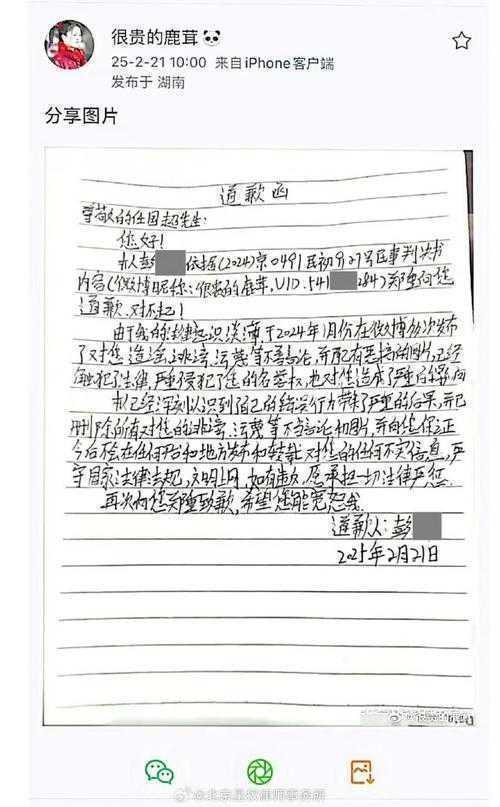 很贵的鹿茸🐼
25-2-21 10:00 来自iPhone客户端
发布于 湖南
分享图片
道歉函
尊敬的任国超先生:
您好!
本人彭 依据(2024)京0491民初9127号民事判决书
内容(微博昵称:很贵的鹿茸,UID:541 284)郑重向您
道歉,对不起!
由于我的法律意识淡薄,于2024年1月份在微博多次发布
了对您造谣、诽谤、污蔑等不善言论,并配有恶搞的图片,已经
触犯了法律,严重侵犯了您的名誉权,也对您造成了严重的影响
我已经深刻认识到自己的错误行为带来了严重的后果,并已
删除所有对您的诽谤、污蔑等不当言论和图片,并向您保证
今后不会在任何平台和地方发布和转载对您的任何不实信息,严
守国家法律法规,文明上网,如有违反,愿承担一切法律严惩.
再次向您郑重致歉,希望您能宽恕我.
道歉人:彭
2025年2月21日
@很贵的鹿茸
@北京星权律师事务所